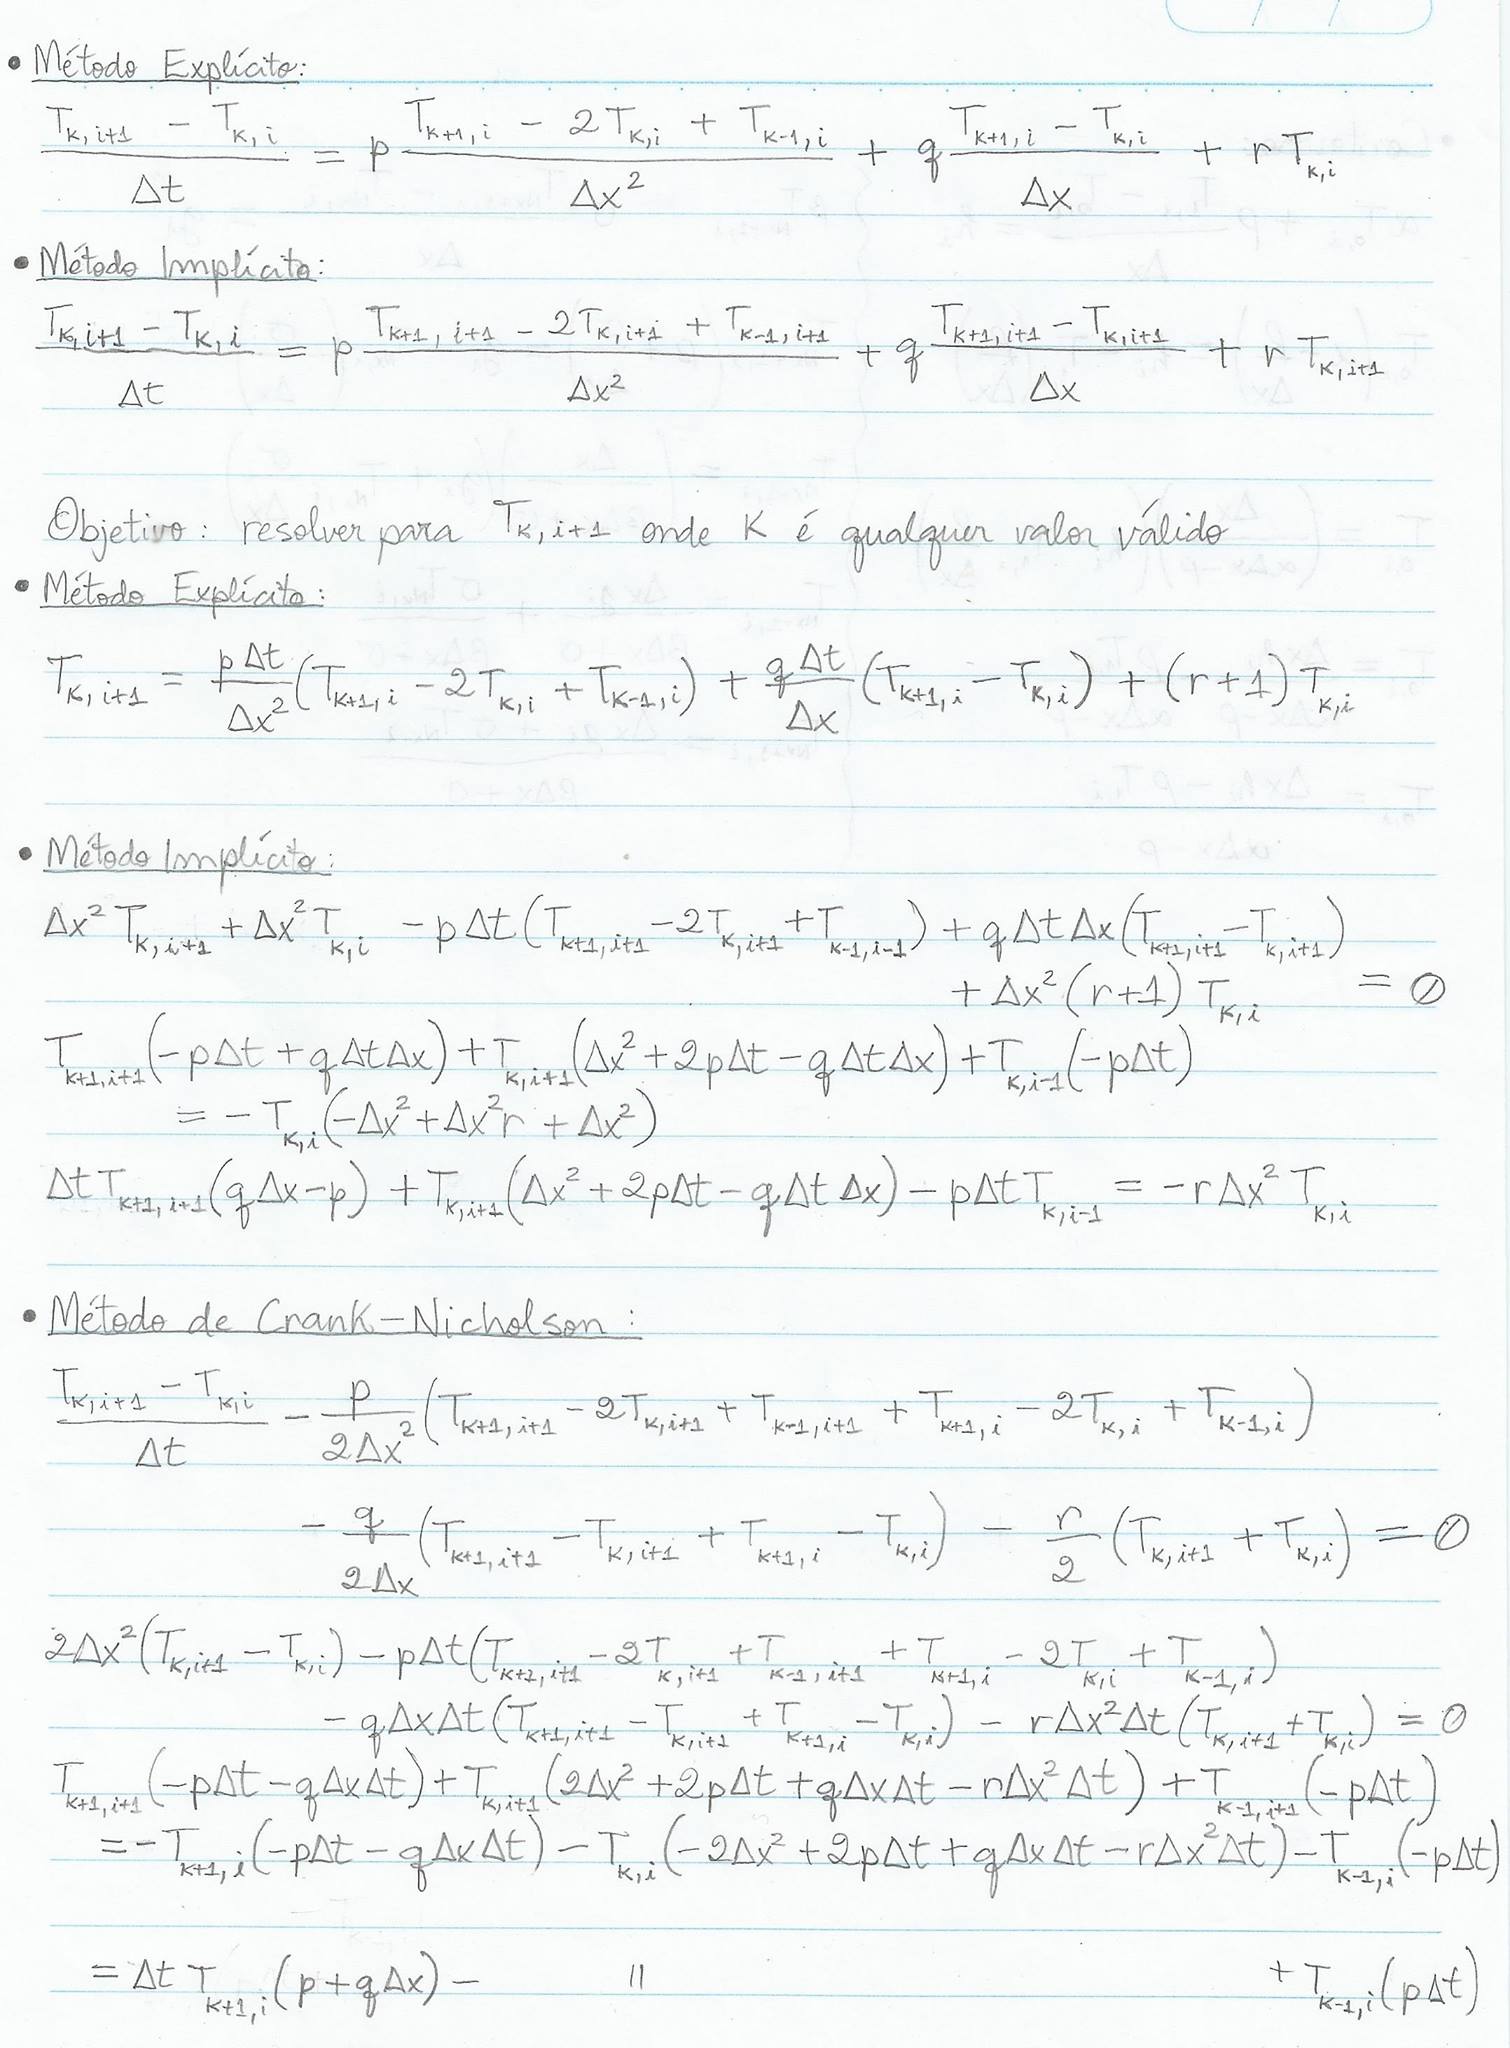 • Método Explícito:
(T_{k,i+1} - T_{k,i})/Δt = p (T_{k+1,i} - 2T_{k,i} + T_{k-1,i})/Δx² + q (T_{k+1,i} - T_{k,i})/Δx + r T_{k,i}
• Método Implícito:
(T_{k,i+1} - T_{k,i})/Δt = p (T_{k+1,i+1} - 2T_{k,i+1} + T_{k-1,i+1})/Δx² + q (T_{k+1,i+1} - T_{k,i+1})/Δx + r T_{k,i+1}
Objetivo: resolver para T_{k,i+1} onde K é qualquer valor válido
• Método Explícito:
T_{k,i+1} = pΔt/Δx² (T_{k+1,i} - 2T_{k,i} + T_{k-1,i}) + qΔt/Δx (T_{k+1,i} - T_{k,i}) + (r+1) T_{k,i}
• Método Implícito:
Δx² T_{k,i+1} + Δx² T_{k,i} - pΔt(T_{k+1,i+1} - 2T_{k,i+1} + T_{k-1,i-1}) + qΔtΔx(T_{k+1,i+1} - T_{k,i+1})
+ Δx²(r+1) T_{k,i} = 0
T_{k+1,i+1}(-pΔt + qΔtΔx) + T_{k,i+1}(Δx² + 2pΔt - qΔtΔx) + T_{k,i-1}(-pΔt)
= - T_{k,i}(-Δx² + Δx²r + Δx²)
Δt T_{k+1,i+1}(qΔx - p) + T_{k,i+1}(Δx² + 2pΔt - qΔtΔx) - pΔt T_{k,i-1} = -rΔx² T_{k,i}
• Método de Crank-Nicholson:
(T_{k,i+1} - T_{k,i})/Δt - p/2Δx² (T_{k+1,i+1} - 2T_{k,i+1} + T_{k-1,i+1} + T_{k+1,i} - 2T_{k,i} + T_{k-1,i})
- q/2Δx (T_{k+1,i+1} - T_{k,i+1} + T_{k+1,i} - T_{k,i}) - r/2 (T_{k,i+1} + T_{k,i}) = 0
2Δx²(T_{k,i+1} - T_{k,i}) - pΔt(T_{k+1,i+1} - 2T_{k,i+1} + T_{k-1,i+1} + T_{k+1,i} - 2T_{k,i} + T_{k-1,i})
- qΔxΔt(T_{k+1,i+1} - T_{k,i+1} + T_{k+1,i} - T_{k,i}) - rΔx²Δt(T_{k,i+1} + T_{k,i}) = 0
T_{k+1,i+1}(-pΔt - qΔxΔt) + T_{k,i+1}(2Δx² + 2pΔt + qΔxΔt - rΔx²Δt) + T_{k-1,i+1}(-pΔt)
= -T_{k+1,i}(-pΔt - qΔxΔt) - T_{k,i}(-2Δx² + 2pΔt + qΔxΔt - rΔx²Δt) - T_{k-1,i}(-pΔt)
= Δt T_{k+1,i}(p + qΔx) - " + T_{k-1,i}(pΔt)